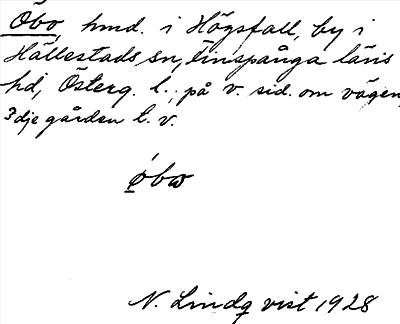 Öbo, hmd. i Högsfall, by i
Hällestads sn, Finspånga läns
hd, Österg. l.; på v. sid. om vägen,
3dje gården t. v.
N. Lindqvist 1928